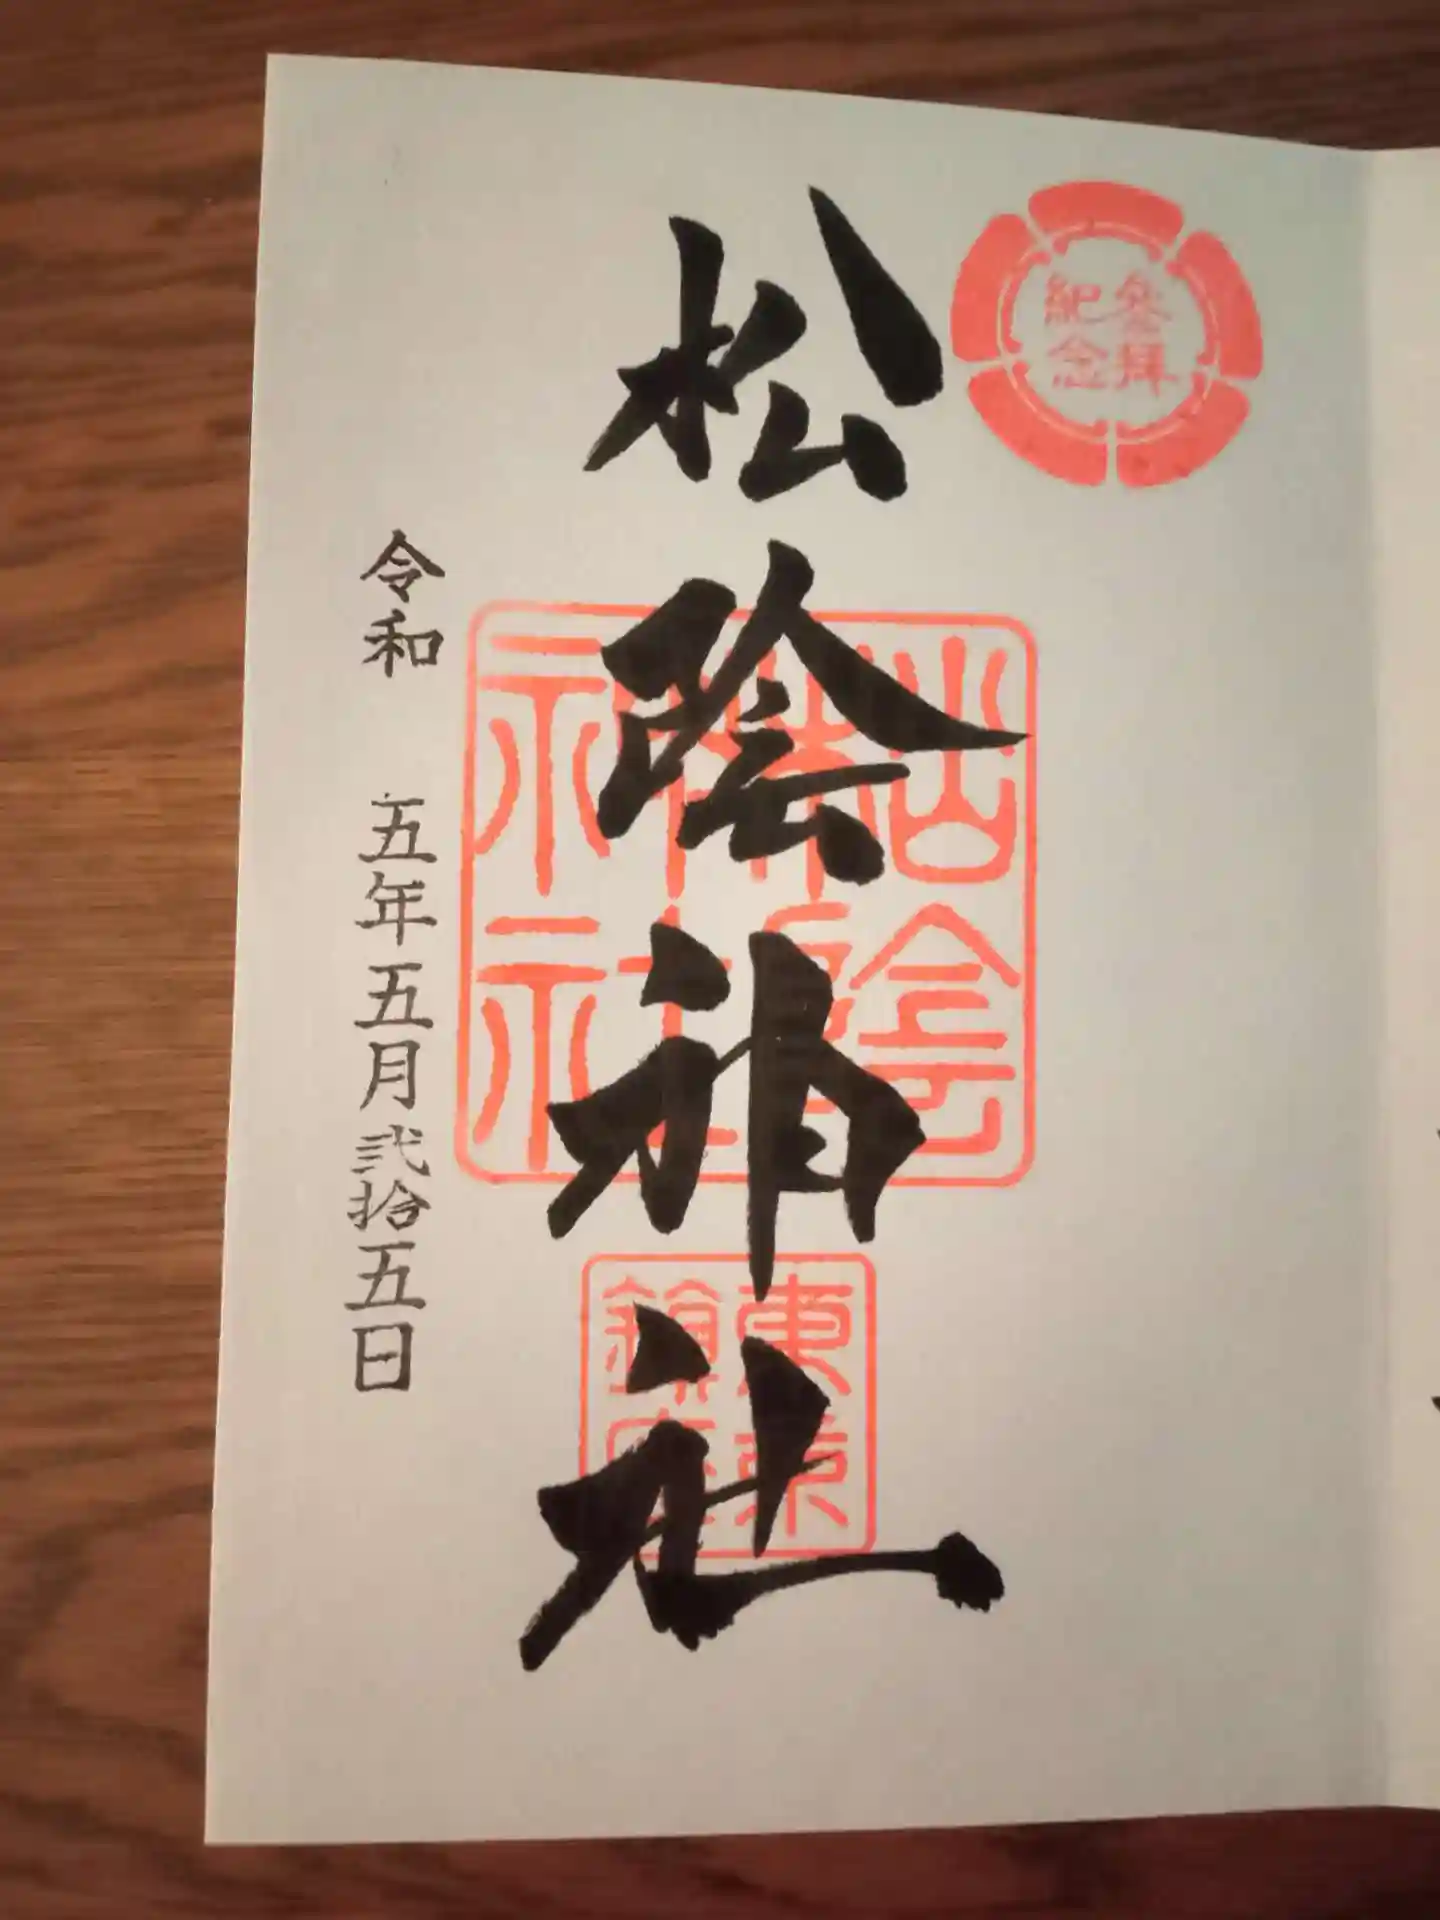 參拜
紀念
松陰神社
松陰
神社
東京
鎮座
令和 五年五月弐拾五日